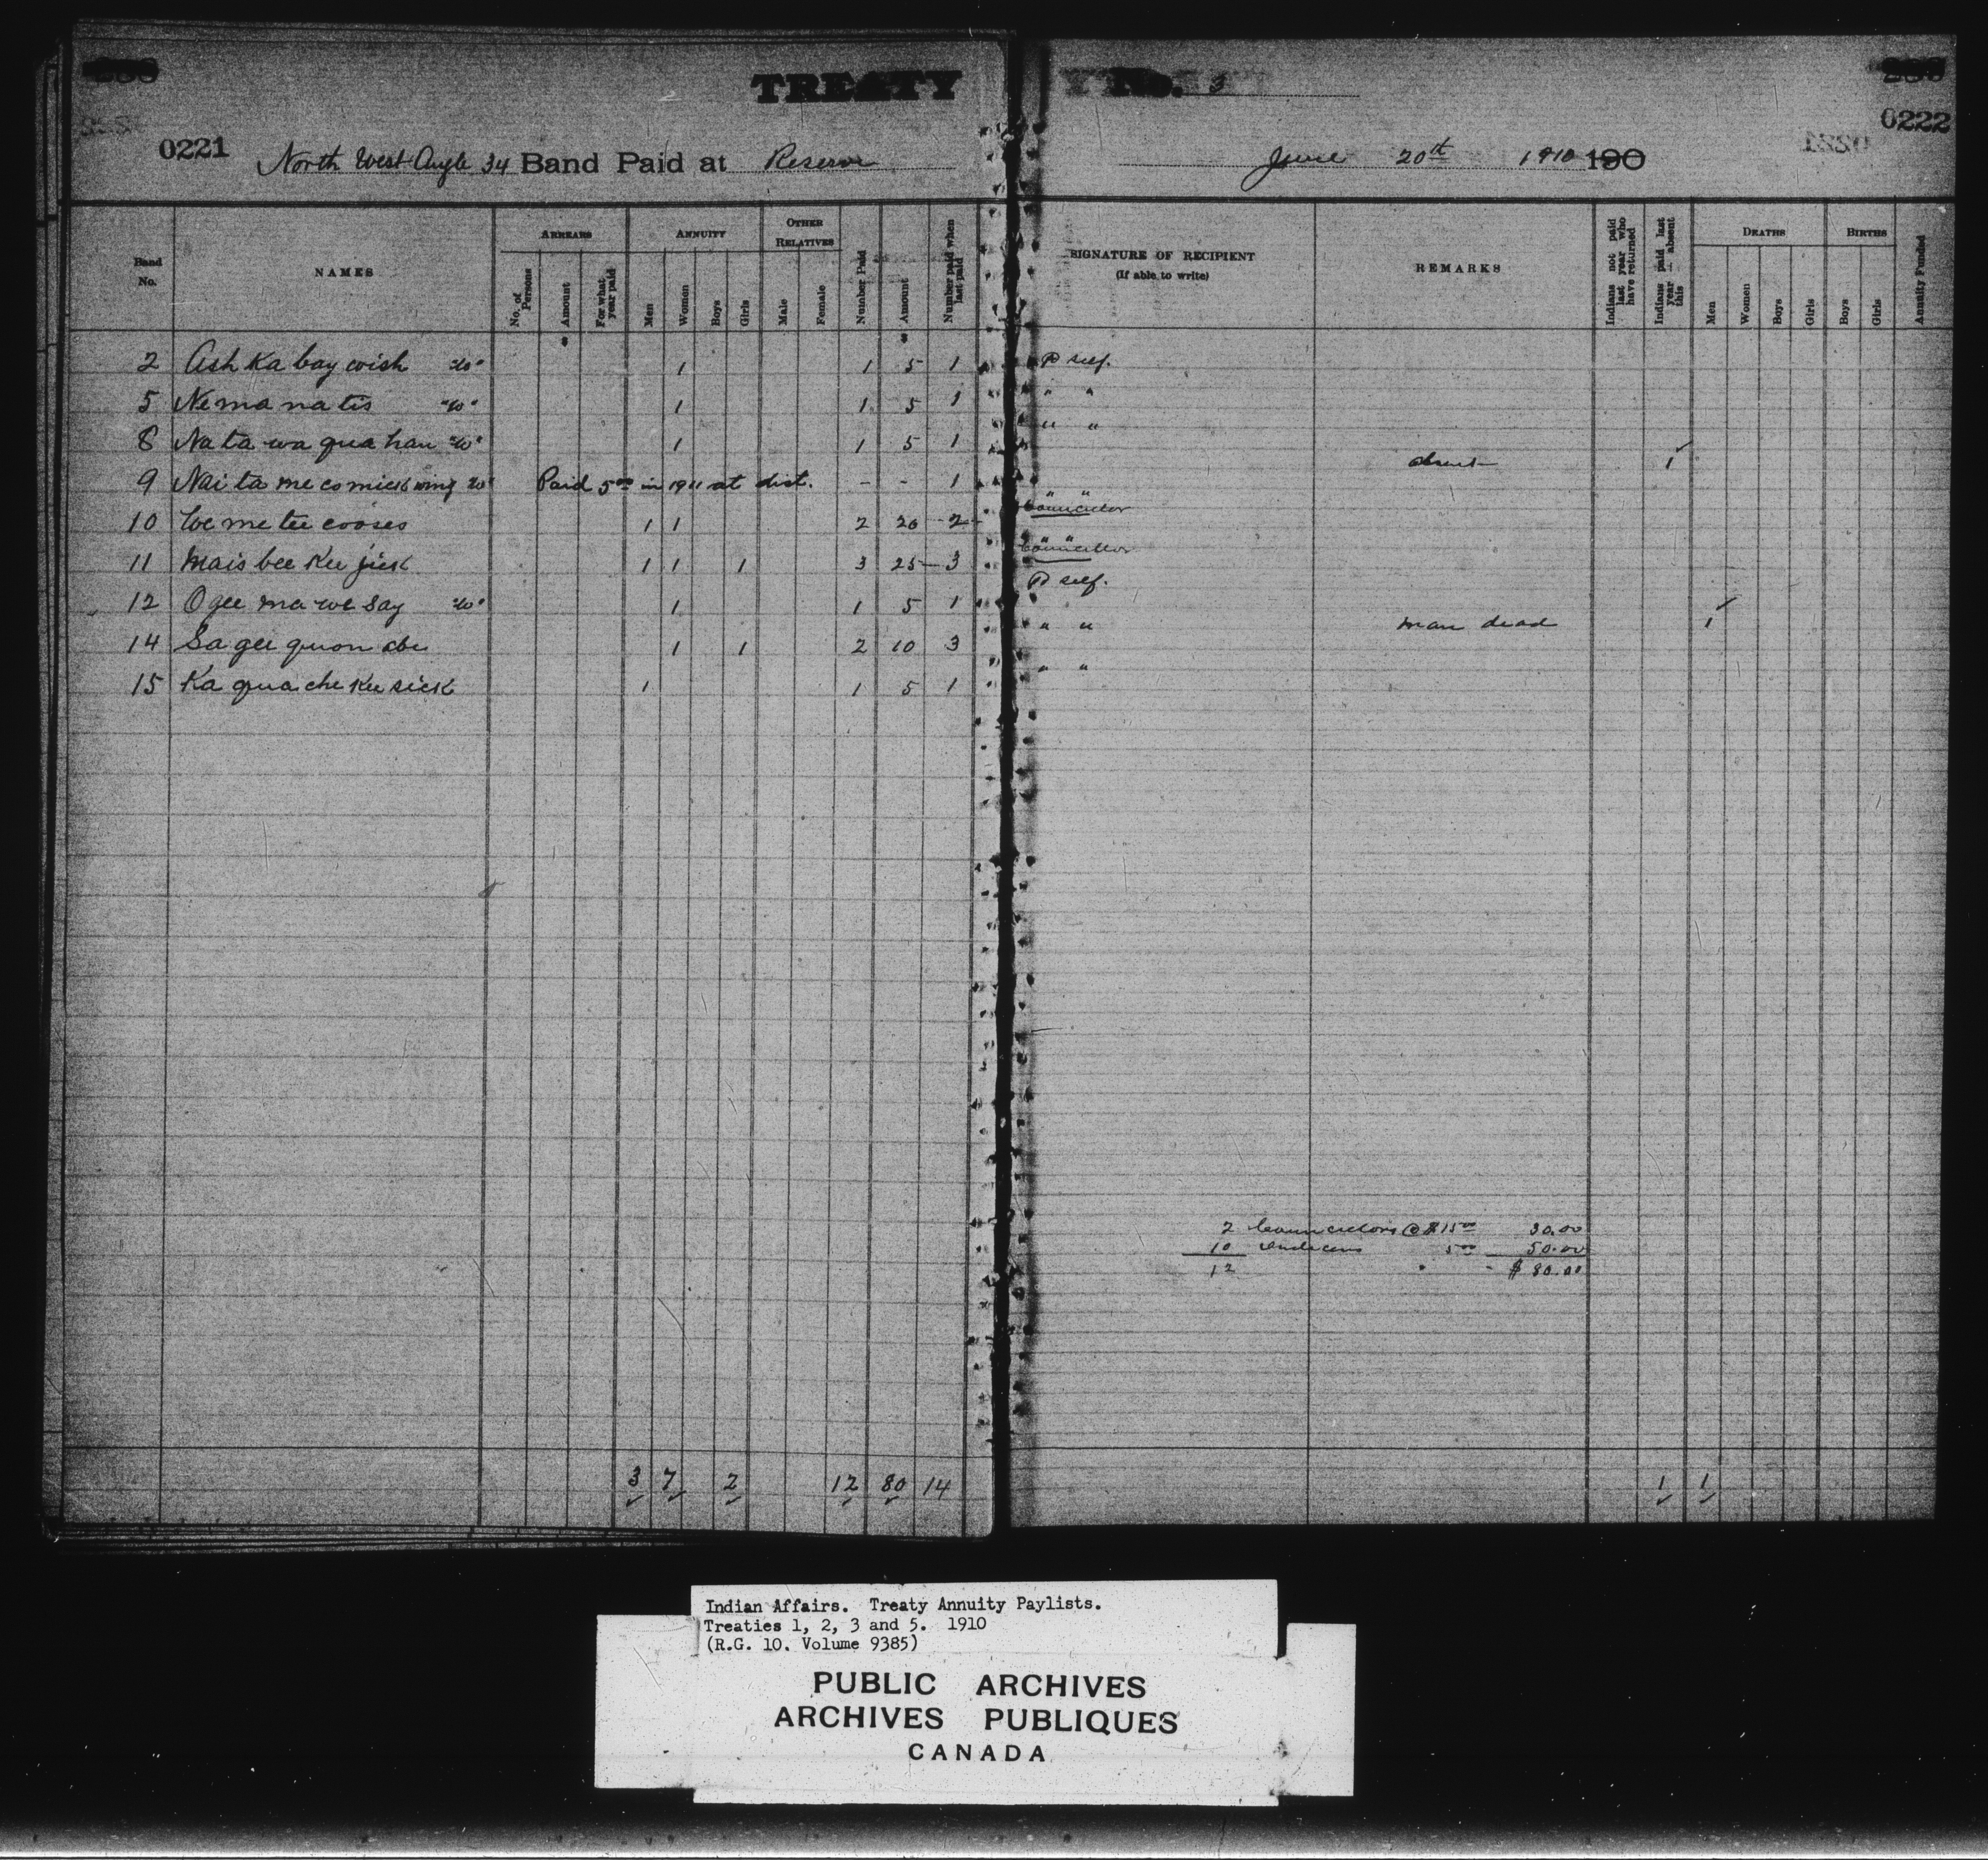 TREATY No. 3
0221
0222
North West Angle 34 Band Paid at Reserve June 20th 1910 190
Band No.
NAMES
ARREARS
No. of Persons
Amount
For what year paid
ANNUITY
Men
Women
Boys
Girls
OTHER RELATIVES
Male
Female
Number Paid
Amount
Number paid when last paid
SIGNATURE OF RECIPIENT
(If able to write)
REMARKS
Indians not paid last year who have returned
Indians paid last year absent this
DEATHS
Men
Women
Boys
Girls
BIRTHS
Boys
Girls
Annuity Funded
$ $
2 Ash Ka bay wish "W" 1 1 5 1 P self.
5 Ne ma na tis "W" 1 1 5 1 " "
8 Na ta wa qua han "W" 1 1 5 1 " "
9 Nai ta me comick wing W" Paid 5 00 in 1911 at dist. - - 1 absent 1
10 We me tee cooses 1 1 2 20 2 " " Councillor
11 Mais bee Kee jick 1 1 1 3 25 3 " " Councillor
12 O gee ma we say "W" 1 1 5 1 P self.
14 Sa gee quon abe 1 1 2 10 3 " " man dead 1
15 Ka qua che Kee sick 1 1 5 1 " "
2 Councillors @ $15 00 30.00
10 Indians 5 00 50.00
12 " - $80.00
3 7 2 12 80 14 1 1
Indian Affairs. Treaty Annuity Paylists.
Treaties 1, 2, 3 and 5. 1910
(R.G. 10. Volume 9385)
PUBLIC ARCHIVES
ARCHIVES PUBLIQUES
CANADA